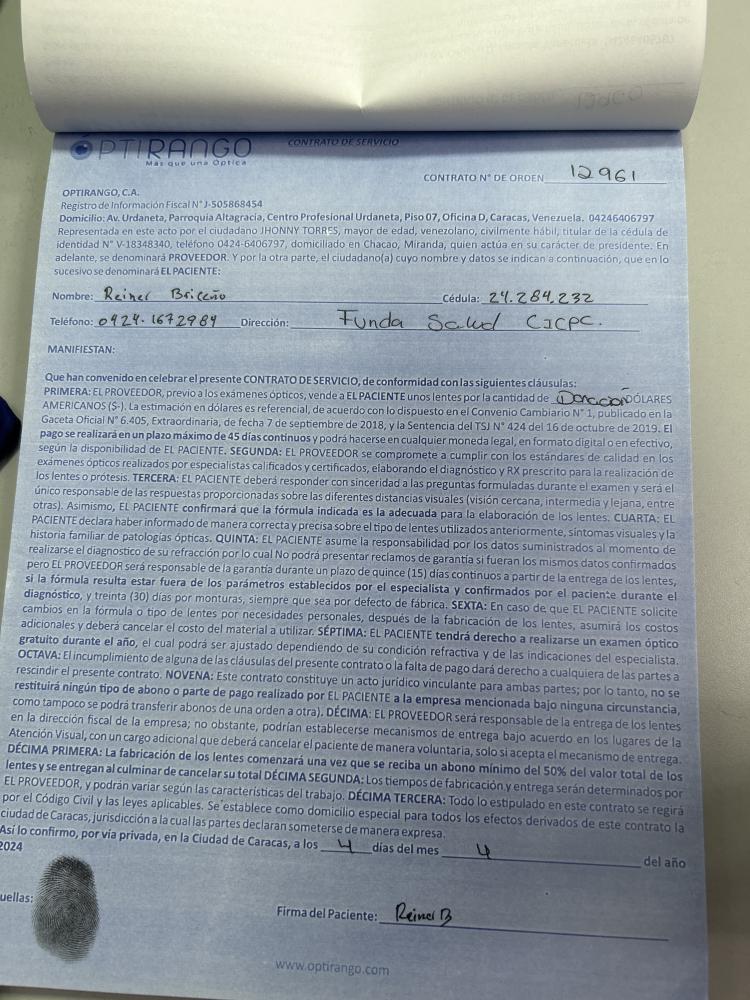 OPTIRANGO
Más que una Óptica
CONTRATO DE SERVICIO
CONTRATO N° DE ORDEN 12961
OPTIRANGO, C.A.
Registro de Información Fiscal N° J-505868454
Domicilio: Av. Urdaneta, Parroquia Altagracia, Centro Profesional Urdaneta, Piso 07, Oficina D, Caracas, Venezuela. 04246406797
Representada en este acto por el ciudadano JHONNY TORRES, mayor de edad, venezolano, civilmente hábil, titular de la cédula de
identidad N° V-18348340, teléfono 0424-6406797, domiciliado en Chacao, Miranda, quien actúa en su carácter de presidente. En
adelante, se denominará PROVEEDOR. Y por la otra parte, el ciudadano(a) cuyo nombre y datos se indican a continuación, que en lo
sucesivo se denominará EL PACIENTE:
Nombre: Reiner Briceño Cédula: 24.284.232
Teléfono: 0424.1672984 Dirección: Funda Salud CICPC.
MANIFIESTAN:
Que han convenido en celebrar el presente CONTRATO DE SERVICIO, de conformidad con las siguientes cláusulas:
PRIMERA: EL PROVEEDOR, previo a los exámenes ópticos, vende a EL PACIENTE unos lentes por la cantidad de Donación DÓLARES
AMERICANOS ($-). La estimación en dólares es referencial, de acuerdo con lo dispuesto en el Convenio Cambiario N° 1, publicado en la
Gaceta Oficial N° 6.405, Extraordinaria, de fecha 7 de septiembre de 2018, y la Sentencia del TSJ N° 424 del 16 de octubre de 2019. El
pago se realizará en un plazo máximo de 45 días continuos y podrá hacerse en cualquier moneda legal, en formato digital o en efectivo,
según la disponibilidad de EL PACIENTE. SEGUNDA: EL PROVEEDOR se compromete a cumplir con los estándares de calidad en los
exámenes ópticos realizados por especialistas calificados y certificados, elaborando el diagnóstico y RX prescrito para la realización de
los lentes o prótesis. TERCERA: EL PACIENTE deberá responder con sinceridad a las preguntas formuladas durante el examen y será el
único responsable de las respuestas proporcionadas sobre las diferentes distancias visuales (visión cercana, intermedia y lejana, entre
otras). Asimismo, EL PACIENTE confirmará que la fórmula indicada es la adecuada para la elaboración de los lentes. CUARTA: EL
PACIENTE declara haber informado de manera correcta y precisa sobre el tipo de lentes utilizados anteriormente, síntomas visuales y la
historia familiar de patologías ópticas. QUINTA: EL PACIENTE asume la responsabilidad por los datos suministrados al momento de
realizarse el diagnostico de su refracción por lo cual No podrá presentar reclamos de garantía si fueran los mismos datos confirmados
pero EL PROVEEDOR será responsable de la garantía durante un plazo de quince (15) días continuos a partir de la entrega de los lentes,
si la fórmula resulta estar fuera de los parámetros establecidos por el especialista y confirmados por el paciente durante el
diagnóstico, y treinta (30) días por monturas, siempre que sea por defecto de fábrica. SEXTA: En caso de que EL PACIENTE solicite
cambios en la fórmula o tipo de lentes por necesidades personales, después de la fabricación de los lentes, asumirá los costos
adicionales y deberá cancelar el costo del material a utilizar. SÉPTIMA: EL PACIENTE tendrá derecho a realizarse un examen óptico
gratuito durante el año, el cual podrá ser ajustado dependiendo de su condición refractiva y de las indicaciones del especialista.
OCTAVA: El incumplimiento de alguna de las cláusulas del presente contrato o la falta de pago dará derecho a cualquiera de las partes a
rescindir el presente contrato. NOVENA: Este contrato constituye un acto jurídico vinculante para ambas partes; por lo tanto, no se
restituirá ningún tipo de abono o parte de pago realizado por EL PACIENTE a la empresa mencionada bajo ninguna circunstancia,
como tampoco se podrá transferir abonos de una orden a otra). DÉCIMA: EL PROVEEDOR será responsable de la entrega de los lentes
en la dirección fiscal de la empresa; no obstante, podrían establecerse mecanismos de entrega bajo acuerdo en los lugares de la
Atención Visual, con un cargo adicional que deberá cancelar el paciente de manera voluntaria, solo si acepta el mecanismo de entrega.
DÉCIMA PRIMERA: La fabricación de los lentes comenzará una vez que se reciba un abono mínimo del 50% del valor total de los
lentes y se entregan al culminar de cancelar su total DÉCIMA SEGUNDA: Los tiempos de fabricación y entrega serán determinados por
EL PROVEEDOR, y podrán variar según las características del trabajo. DÉCIMA TERCERA: Todo lo estipulado en este contrato se regirá
por el Código Civil y las leyes aplicables. Se establece como domicilio especial para todos los efectos derivados de este contrato la
ciudad de Caracas, jurisdicción a la cual las partes declaran someterse de manera expresa.
Así lo confirmo, por vía privada, en la Ciudad de Caracas, a los 4 días del mes 4 del año
2024
uellas:
Firma del Paciente: Reiner B
www.optirango.com